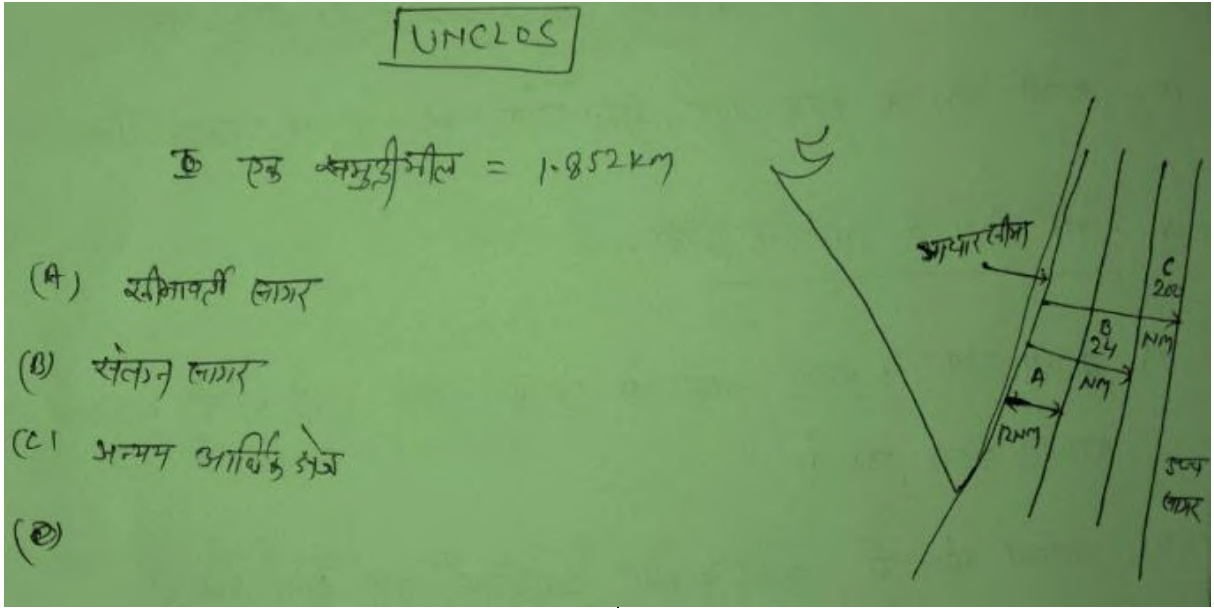 UNCLOS
एक समुद्रीमील = 1.852 km
(A) सीमावर्ती सागर
(B) संलग्न सागर
(C) अनन्य आर्थिक क्षेत्र
आधार सीमा
A
12NM
B
24
NM
C
200
NM
उच्च
सागर